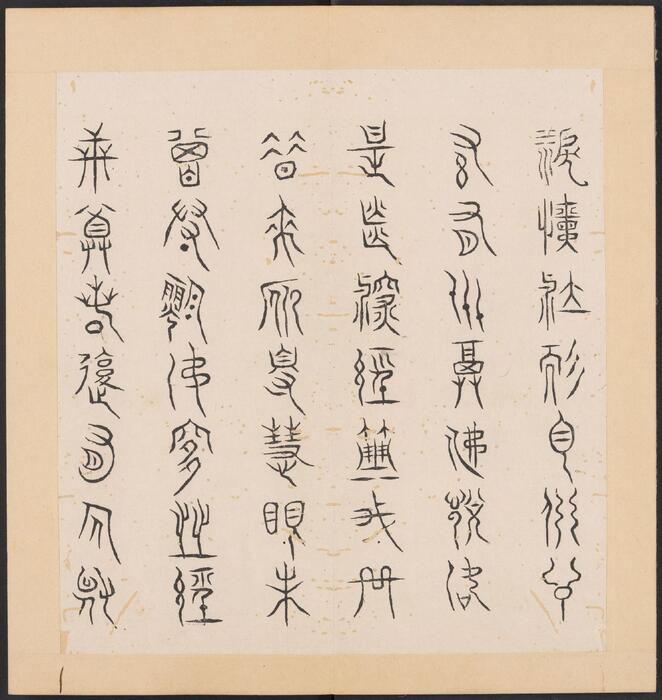 淚悲泣而白佛言
希有世尊佛說如
是甚深經典我從
昔來所得慧眼未
曾得聞如是之經
世尊若復有人得